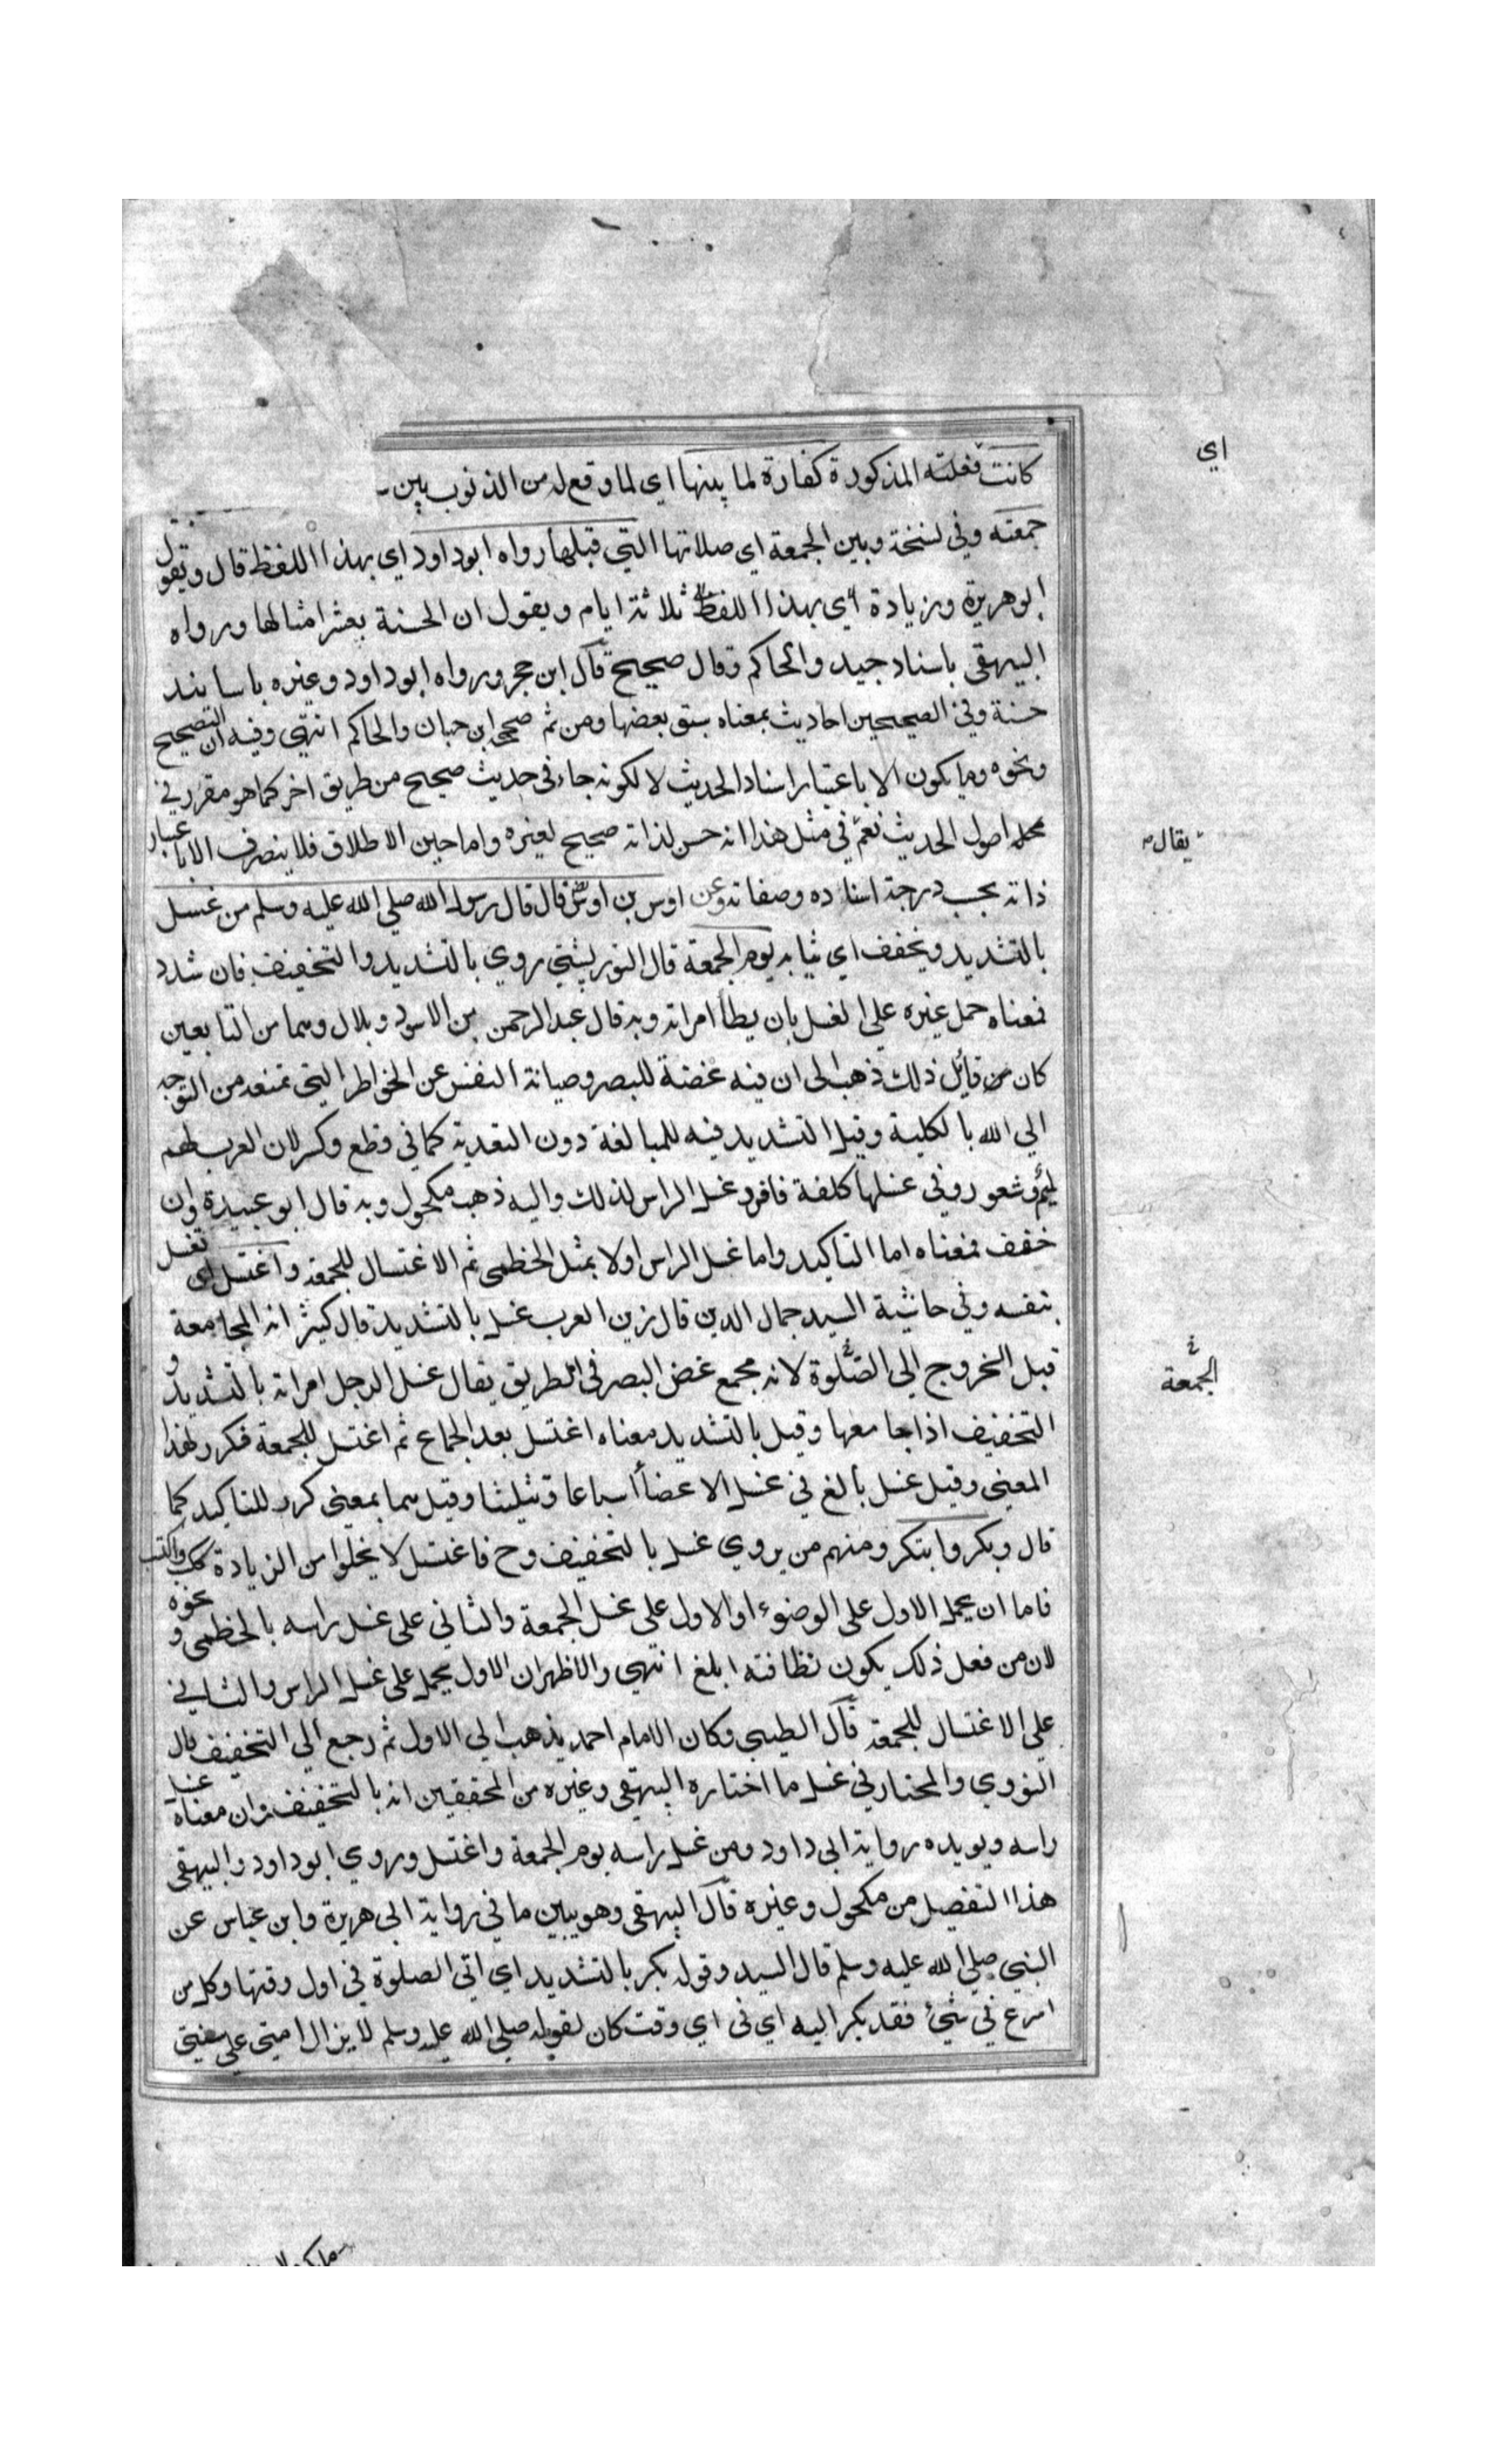 كانت فعلته المذكورة كفارة لما بينها اي لما وقع له من الذنوب بين
اي
جمعته وفي نسخة وبين الجمعة اي صلاتها التي قبلها رواه ابوداود اي بهذا اللفظ قال ويقول
ابو هريرة وزيادة اي بهذا اللفظ ثلاثة ايام ويقول ان الحسنة بعشر امثالها ورواه
البيهقي باسناد جيد والحاكم وقال صحيح قال ابن حجر ورواه ابوداود وغيره باسانيد
حسنة وفي الصحيحين احاديث بمعناه سبق بعضها ومن ثم صححه ابن حبان والحاكم انتهى وفيه ان التصحيح
ونحوه وما يكون الا باعتبار اسناد الحديث لا لكونه جاء في حديث صحيح من طريق اخر كما هو مقرر في
محله اصول الحديث نعم في مثل هذا انه حسن لذاته صحيح لغيره واما حين الاطلاق فلا ينصرف الا باعتبار
يقال
ذاته بحسب درجة اسناده وصفاته وعن اوس بن اوس قال قال رسول الله صلي الله عليه وسلم من غسل
بالتشديد ويخفف اي ثيابه يوم الجمعة قال التوربشتي روي بالتشديد والتخفيف فان شدد
فمعناه حمل غيره علي الغسل بان يطأ امراته وبه قال عبد الرحمن بن الاسود وبلال وهما من التابعين
كان من قايل ذلك ذهب الى ان فيه غضة للبصر وصيانة النفس عن الخواطر التي تمنعه من التوجه
الي الله بالكلية وقيل التشديد فيه للمبالغة دون التعدية كما في قطع وكسر لان العرب لهم
لمم وشعور وفي غسلها كلفة فافرد غسل الراس لذلك واليه ذهب مكحول وبه قال ابو عبيدة وان
خفف فمعناه اما التاكيد واما غسل الراس اولا بمثل الخطمى ثم الاغتسال للجمعة واغتسل اي تغسل
بنفسه وفي حاشية السيد جمال الدين قال زين العرب غسل بالتشديد قال كثير انه المجامعة
قبل الخروج الي الصلوة لانه مجمع غض البصر في الطريق يقال غسل الرجل امراته بالتشديد و
الجمعة
التخفيف اذا جامعها وقيل بالتشديد معناه اغتسل بعد الجماع ثم اغتسل للجمعة فكرر لهذا
المعنى وقيل غسل بالغ في غسل الاعضأ اسباغا وتثليثا وقيل هما بمعنى كرر للتاكيد كما
قال وبكر وابتكر ومنهم من يروي غسل بالتخفيف وح فاغتسل لا يخلوا من الزيادة ككسب واكتسب
فاما ان يحمل الاول على الوضوء او الاول علي غسل الجمعة والثاني علي غسل راسه بالخطمى و نحوه
لان من فعل ذلك يكون نظافته ابلغ انتهى والاظهر ان الاول يحمل على غسل الراس والثاني
علي الاغتسال للجمعة قال الطيبى وكان الامام احمد يذهب الي الاول ثم رجع الي التخفيف قال
النووي والمختار في غسل ما اختاره البيهقى وغيره من المحققين انه بالتخفيف وان معناه غسل
راسه ويويده رواية ابى داود ومن غسل راسه يوم الجمعة واغتسل وروي ابو داود والبيهقى
هذا التفصيل من مكحول وغيره قال البيهقى وهو يبين ما في رواية ابى هريرة وابن عباس عن
النبي صلي الله عليه وسلم قال السيد وقوله بكر بالتشديد اي اتى الصلوة في اول وقتها وكل من
اسرع في شئ فقد بكر اليه اي في اي وقت كان لقوله صلي الله عليه وسلم لا يزال امتي علي سنتي